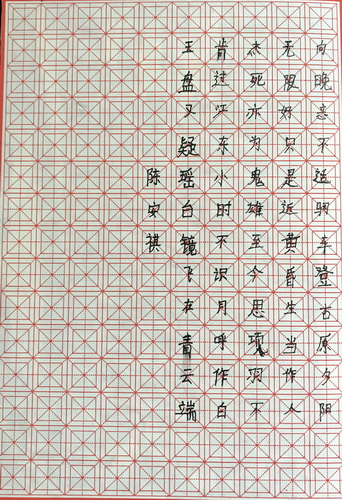 向晚意不适驱车登古原夕阳
无限好只是近黄昏生当作人
杰死亦为鬼雄至今思项羽不
肯过江东小时不识月呼作白
王盘又疑瑶台镜飞在青云端
陈安祺